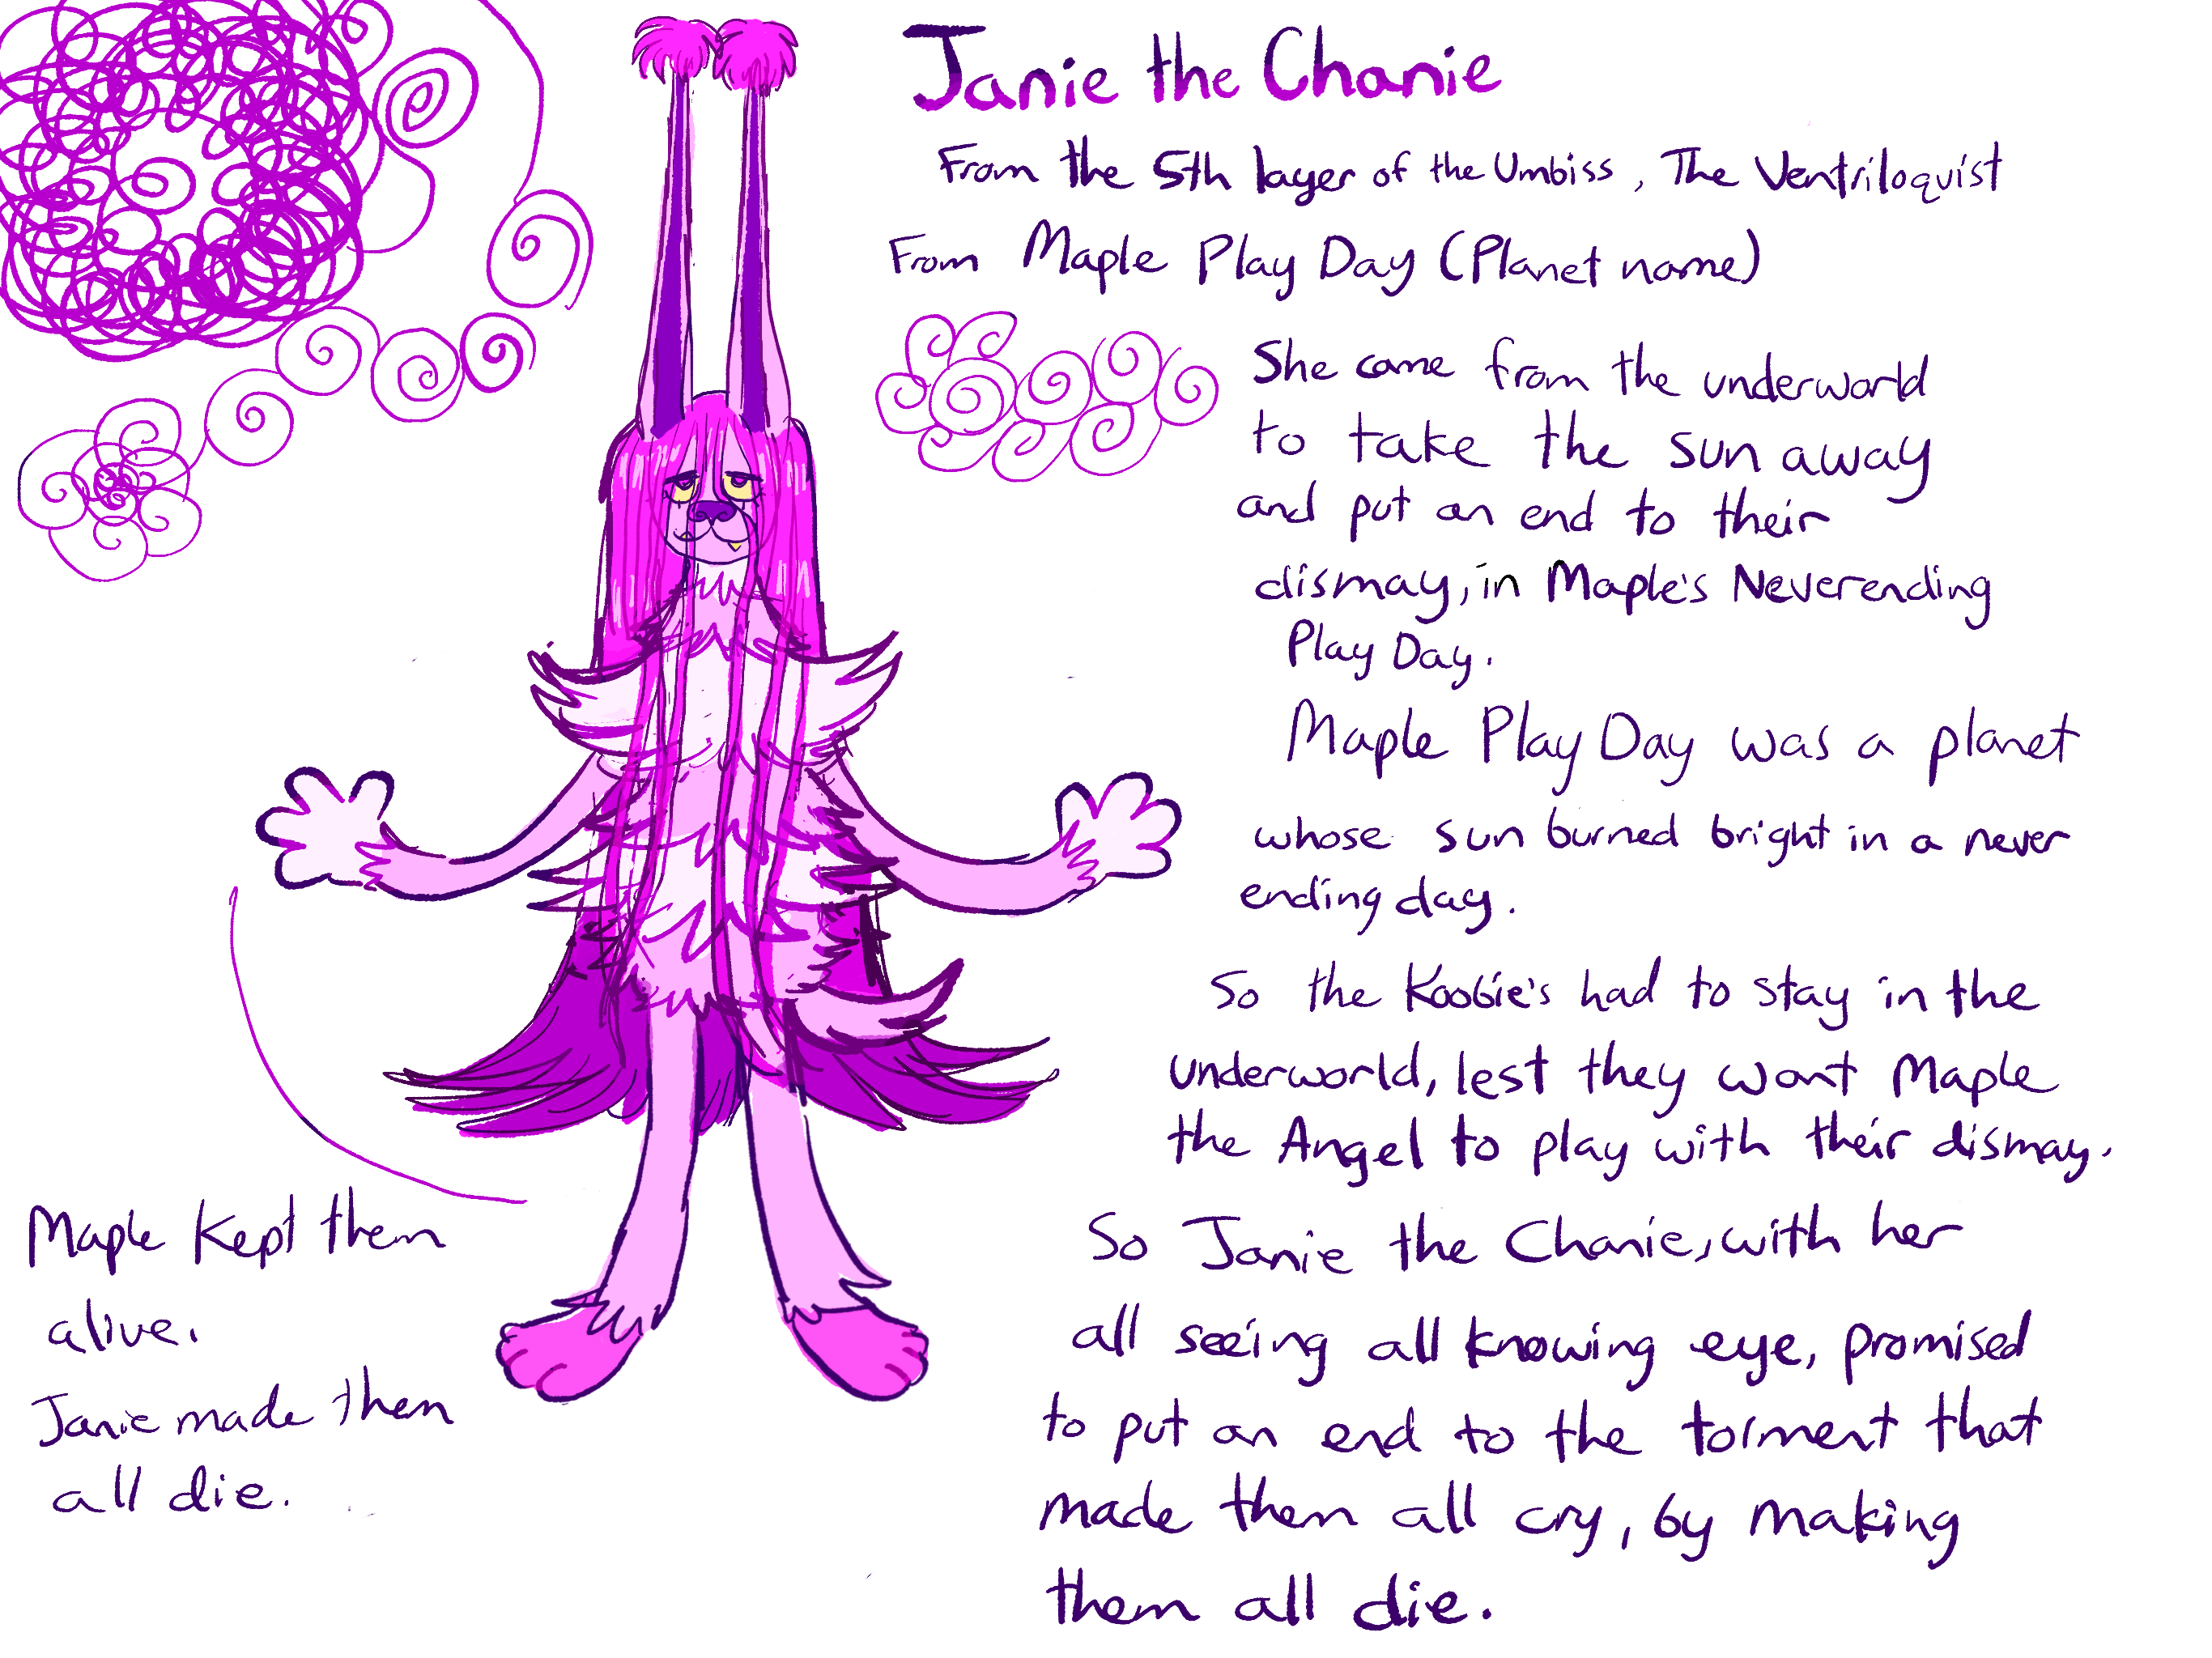 Janie the Chanie
From the 5th layer of the Umbiss, The Ventriloquist
From Maple Play Day (Planet name)
She came from the underworld
to take the sun away
and put an end to their
dismay, in Maple's Neverending
Play Day.
Maple Play Day was a planet
whose sun burned bright in a never
ending day.
So the Koobie's had to stay in the
underworld, lest they want Maple
the Angel to play with their dismay.
So Janie the Chanie, with her
all seeing all knowing eye, promised
to put an end to the torment that
made them all cry, by making
them all die.
Maple kept them
alive.
Janie made them
all die.